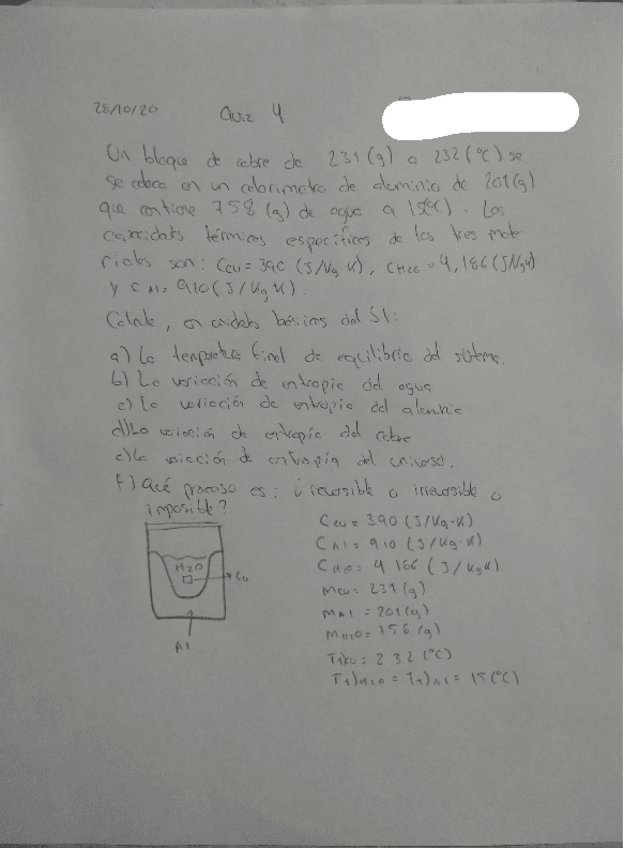 28/10/20 Quiz 4
Un bloque de cobre de 231 (g) a 232 (°C) se
se coloca en un calorímetro de aluminio de 201 (g)
que contiene 758 (g) de agua a 15(°C). Las
capacidades térmicas específicas de los tres mate
riales son: Ccu = 390 (J/kg K), CH2O = 4,186 (J/kgK)
y C Al = 910 (J/kg K).
Calcule, en unidades básicas del SI:
a) La temperatura final de equilibrio del sistema.
b) La variación de entropía del agua
c) La variación de entropía del aluminio
d) La variación de entropía del cobre
e) La variación de entropía del universo.
f) Qué proceso es: ¿ reversible o irreversible o
imposible?
H2O
Cu
Al
Ccu = 390 (J/kg·K)
CAl = 910 (J/kg·K)
CH2O = 4 186 (J/kgK)
mcu = 231 (g)
mAl = 201 (g)
mH2O = 758 (g)
T1)cu = 232 (°C)
T1)H2O = T1)Al = 15 (°C)